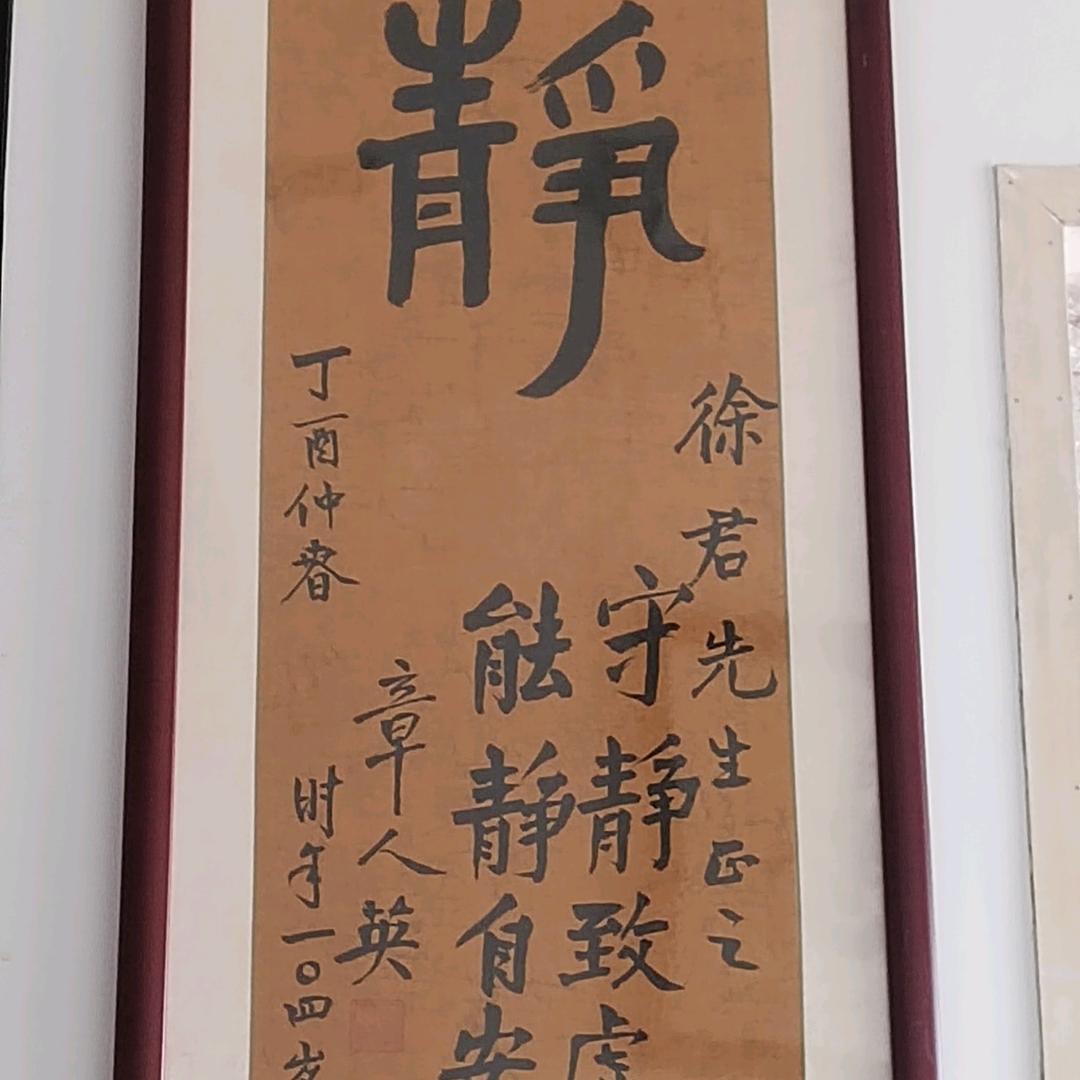 靜
徐君先生正之
守靜致虛
能靜自安
章人英
丁酉仲春
時年一〇四岁